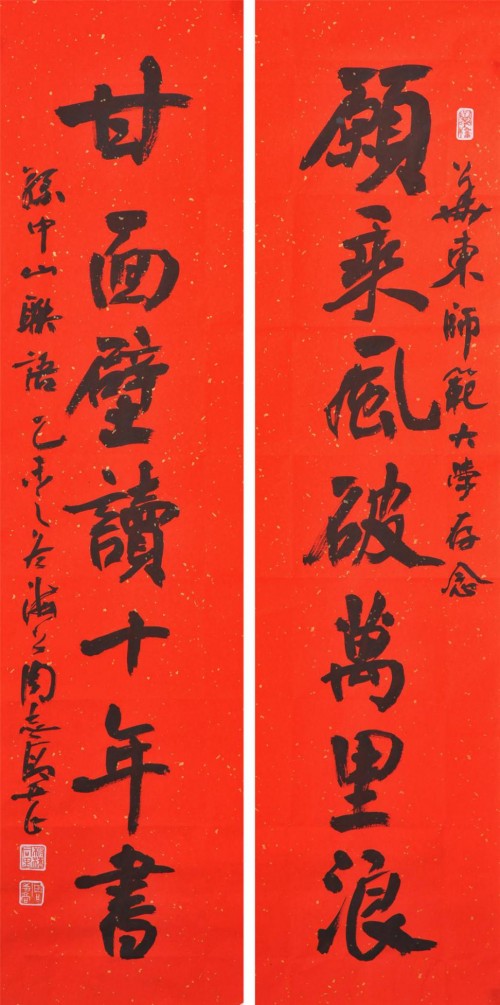 華東師範大學存念
願乘風破萬里浪
甘面壁讀十年書
孫中山聯語乙未之冬海上周志高書